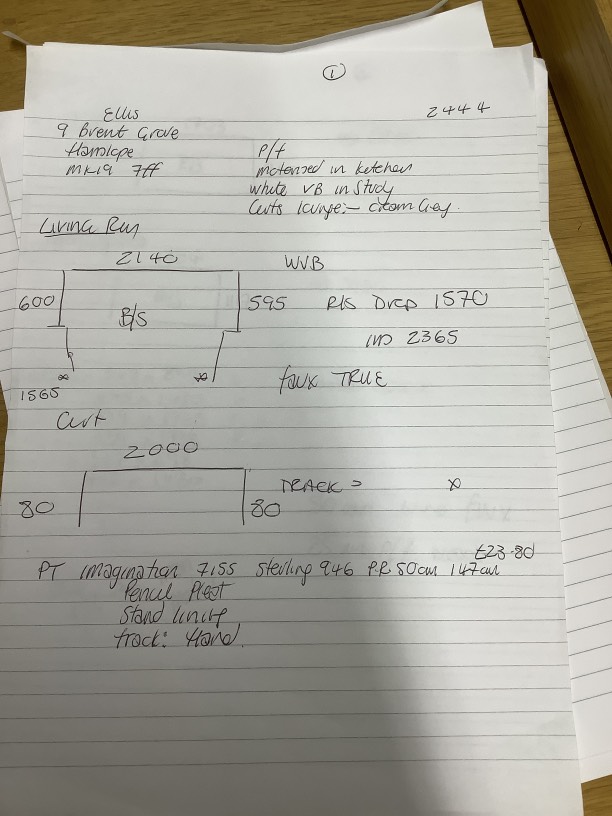 ①
Ellis 2444
9 Brent Grove
Hanslope P/f
MK19 7ff motorised in kitchen
white VB in Study
Curts lounge:- cream Grey.
Living Rm
2140 WVB
600 B/S 595 R/S Drop 1570
2365
1565 faux TRUE
Curt
2000
80 80 TRACK =
£23-80
PT imagination 7155 Sterling 946 P.R 50cm 147cm
Pencil Pleat
Stand lining
track: Hand.